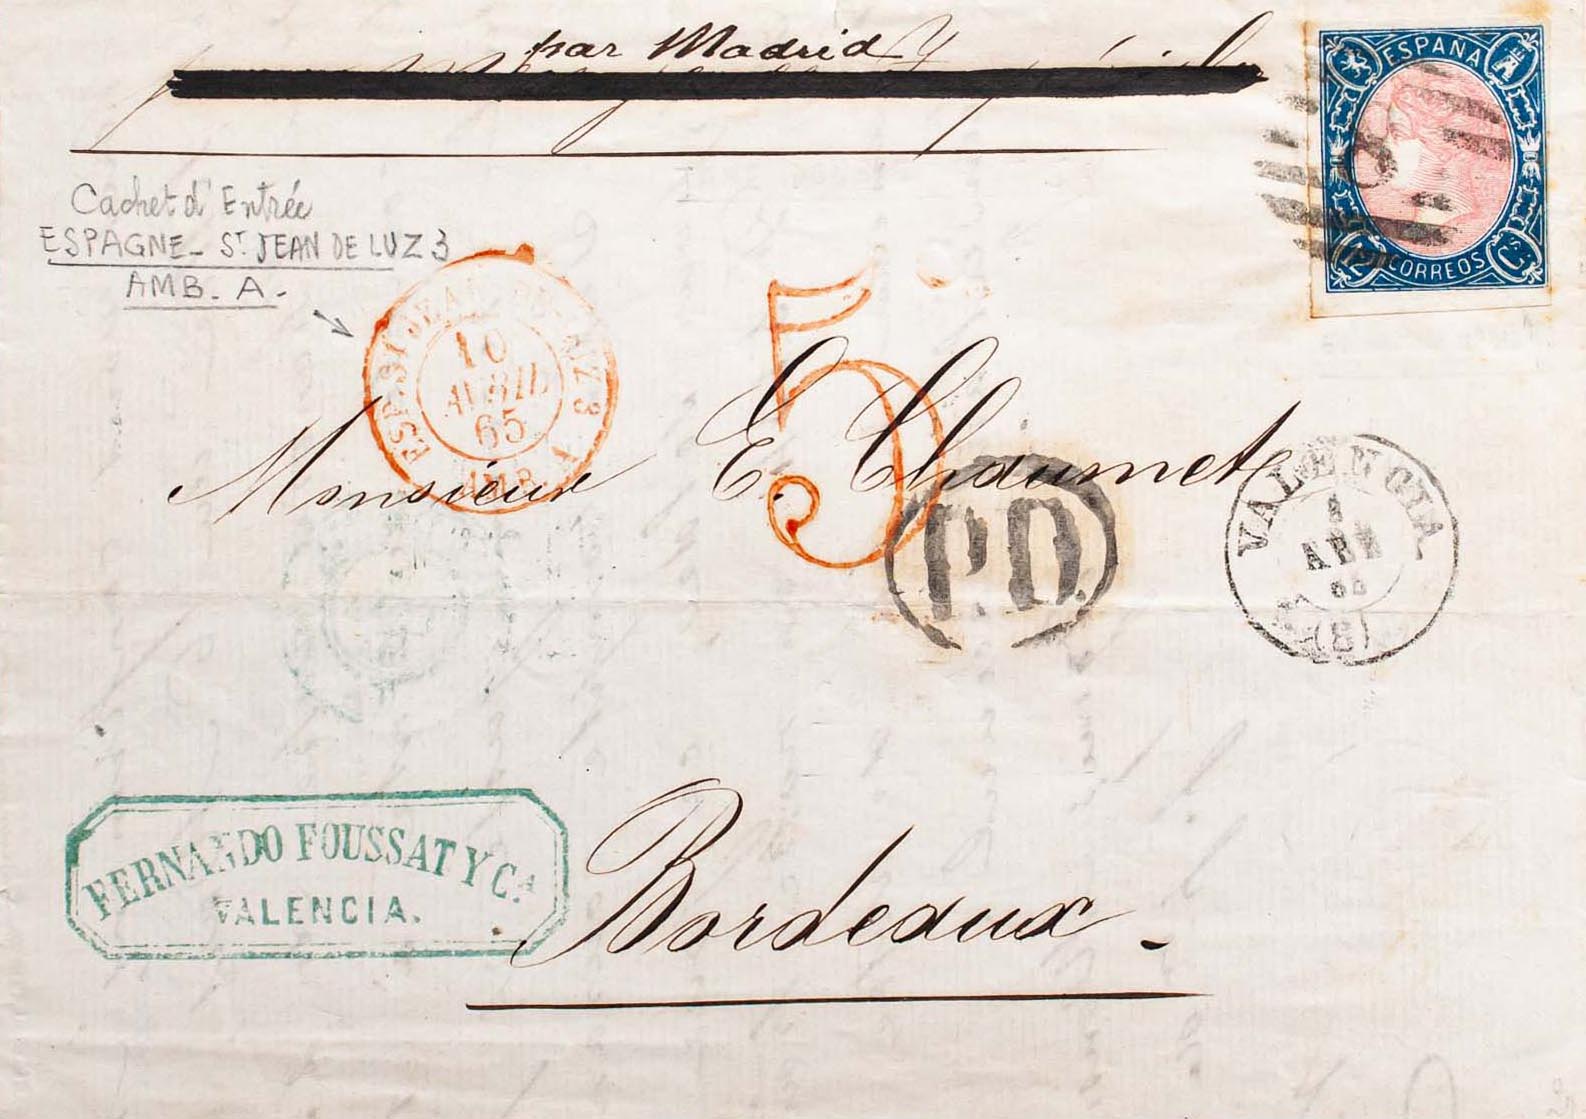 par Madrid
ESPAÑA
12 CORREOS Cs
Cachet d'Entrée
ESPAGNE - ST JEAN DE LUZ 3
AMB. A.
ESP. ST JEAN DE LUZ 3
10
AVRIL
65
AMB. A
5
Monsieur E. Chaumet
P.D.
VALENCIA
ABR
(3)
FERNANDO FOUSSAT Y Ca.
VALENCIA.
Bordeaux.